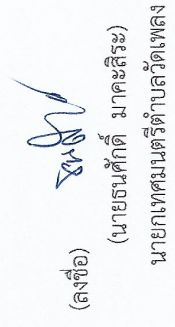 (ลงชื่อ)
(นายธนศักดิ์ มาคะสิระ)
นายกเทศมนตรีตำบลวัดเพลง